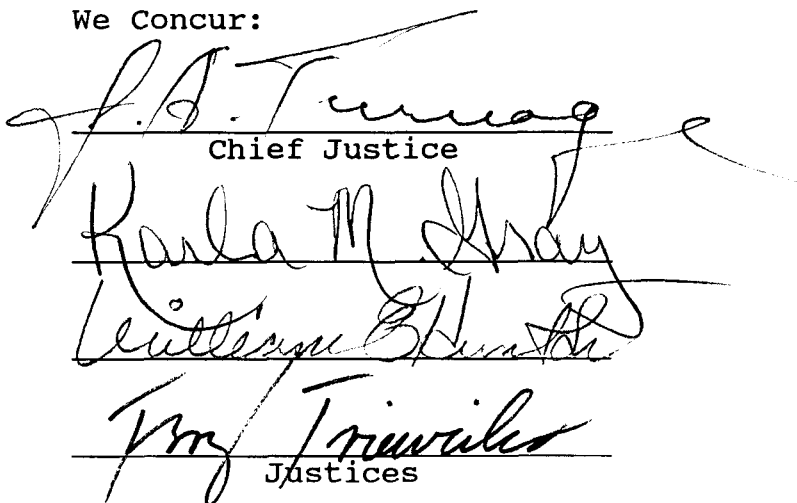 We Concur:
J. A. Turnage
Chief Justice
Karla M. Gray
William E. Hunt Sr.
Terry Trieweiler
Justices